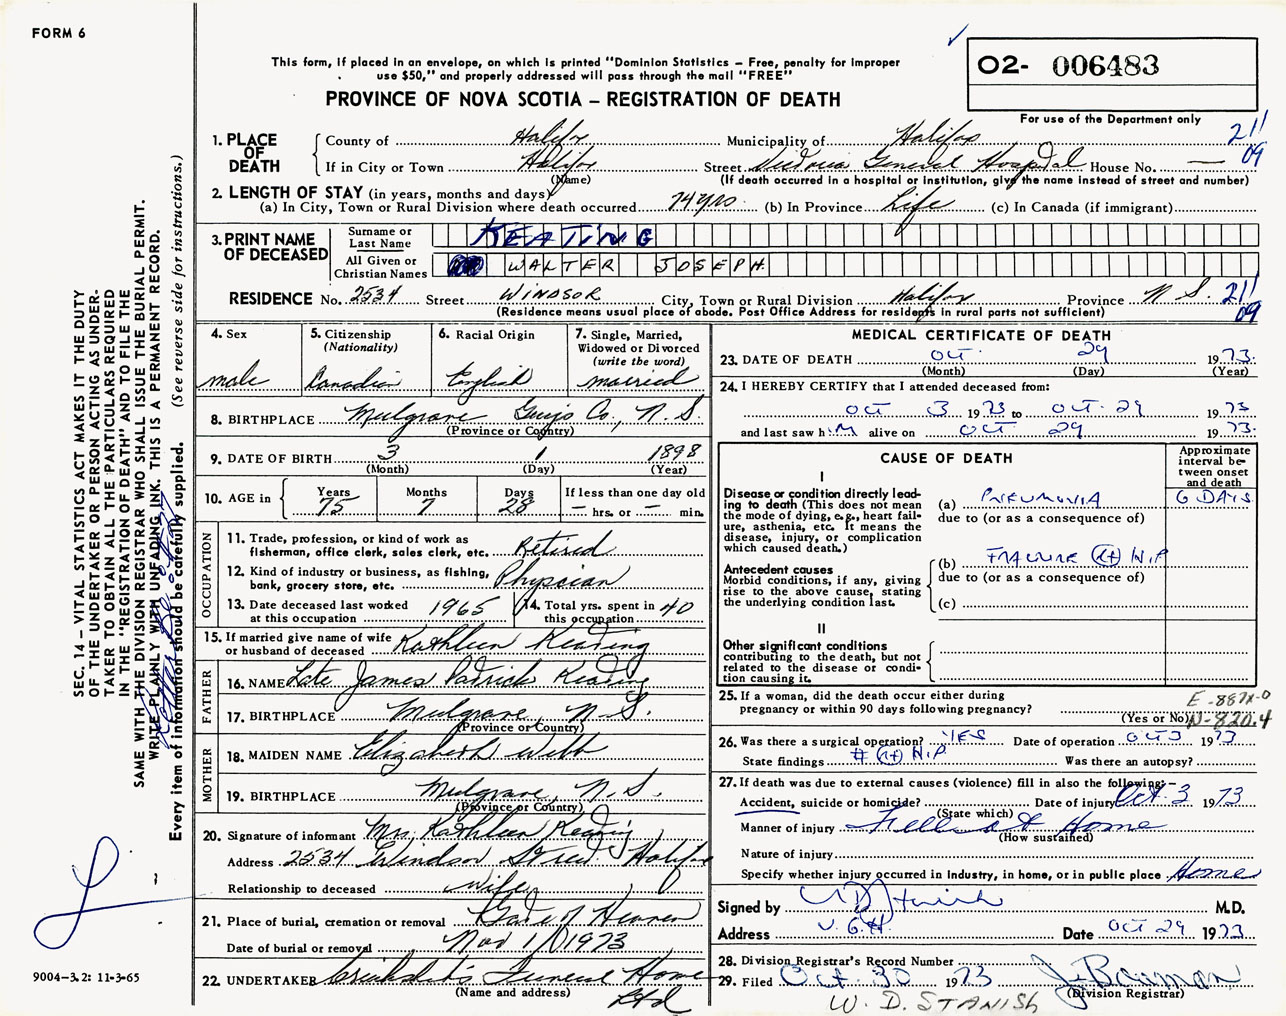 FORM 6
This form, if placed in an envelope, on which is printed "Dominion Statistics – Free, penalty for improper
use $50," and properly addressed will pass through the mail "FREE"
PROVINCE OF NOVA SCOTIA – REGISTRATION OF DEATH
O2- 006483
For use of the Department only
1. PLACE OF DEATH
County of Halifax Municipality of Halifax 211
If in City or Town Halifax Street Victoria General Hospital House No. — 09
(Name) (If death occurred in a hospital or institution, give the name instead of street and number)
2. LENGTH OF STAY (in years, months and days)
(a) In City, Town or Rural Division where death occurred 74 yrs. (b) In Province Life (c) In Canada (if immigrant)
3. PRINT NAME OF DECEASED
Surname or Last Name KEATING
All Given or Christian Names WALTER JOSEPH
RESIDENCE No. 2534 Street WINDSOR City, Town or Rural Division Halifax Province N S. 211
(Residence means usual place of abode. Post Office Address for residents in rural parts not sufficient) 09
4. Sex
male
5. Citizenship (Nationality)
Canadian
6. Racial Origin
English
7. Single, Married, Widowed or Divorced (write the word)
married
8. BIRTHPLACE Mulgrave Guys Co., N. S.
(Province or Country)
9. DATE OF BIRTH 3 1 1898
(Month) (Day) (Year)
10. AGE in Years 75 Months 7 Days 28 If less than one day old – hrs. or – min.
OCCUPATION
11. Trade, profession, or kind of work as fisherman, office clerk, sales clerk, etc. Retired
12. Kind of industry or business, as fishing, bank, grocery store, etc. Physcian
13. Date deceased last worked at this occupation 1965
14. Total yrs. spent in this occupation 40
15. If married give name of wife or husband of deceased Kathleen Keating
FATHER
16. NAME Late James Patrick Keating
17. BIRTHPLACE Mulgrave, N. S.
(Province or Country)
MOTHER
18. MAIDEN NAME Elizabeth Webb
19. BIRTHPLACE Mulgrave, N. S.
(Province or Country)
20. Signature of informant Mrs. Kathleen Keating
Address 2534 Windsor Street Halifax
Relationship to deceased wife
21. Place of burial, cremation or removal Gate of Heaven
Date of burial or removal Nov 1/1973
22. UNDERTAKER Cruikshank's Funeral Home
(Name and address) Ltd
MEDICAL CERTIFICATE OF DEATH
23. DATE OF DEATH OCT. 29 1973.
(Month) (Day) (Year)
24. I HEREBY CERTIFY that I attended deceased from:
OCT 3 1973 to OCT. 29 1973
and last saw him alive on OCT 29 1973.
CAUSE OF DEATH
Approximate interval between onset and death
I
Disease or condition directly leading to death (This does not mean the mode of dying, e.g., heart failure, asthenia, etc. It means the disease, injury, or complication which caused death.)
(a) PNEUMONIA 6 DAYS
due to (or as a consequence of)
Antecedent causes
Morbid conditions, if any, giving rise to the above cause, stating the underlying condition last.
(b) FRACTURE (Lt) HIP
due to (or as a consequence of)
(c)
II
Other significant conditions
contributing to the death, but not related to the disease or condition causing it.
25. If a woman, did the death occur either during pregnancy or within 90 days following pregnancy?
(Yes or No)
E -887X-0
N-820.4
26. Was there a surgical operation? YES Date of operation OCT 3 1973
State findings # (Lt) HIP Was there an autopsy?
27. If death was due to external causes (violence) fill in also the following:–
Accident, suicide or homicide? Date of injury Oct. 3 1973
(State which)
Manner of injury Fell at Home
(How sustained)
Nature of injury
Specify whether injury occurred in Industry, in home, or in public place Home
Signed by M.D.
Address V. G. H. Date OCT 29 1973
28. Division Registrar's Record Number
29. Filed Oct. 30 1973
(Division Registrar)
W. D. STANISH
SEC. 14 – VITAL STATISTICS ACT MAKES IT THE DUTY
OF THE UNDERTAKER OR PERSON ACTING AS UNDER-
TAKER TO OBTAIN ALL THE PARTICULARS REQUIRED
IN THE "REGISTRATION OF DEATH" AND TO FILE THE
SAME WITH THE DIVISION REGISTRAR WHO SHALL ISSUE THE BURIAL PERMIT.
WRITE PLAINLY WITH UNFADING INK. THIS IS A PERMANENT RECORD.
Every item of information should be carefully supplied. (See reverse side for instructions.)
9004–3.2: 11-3-65